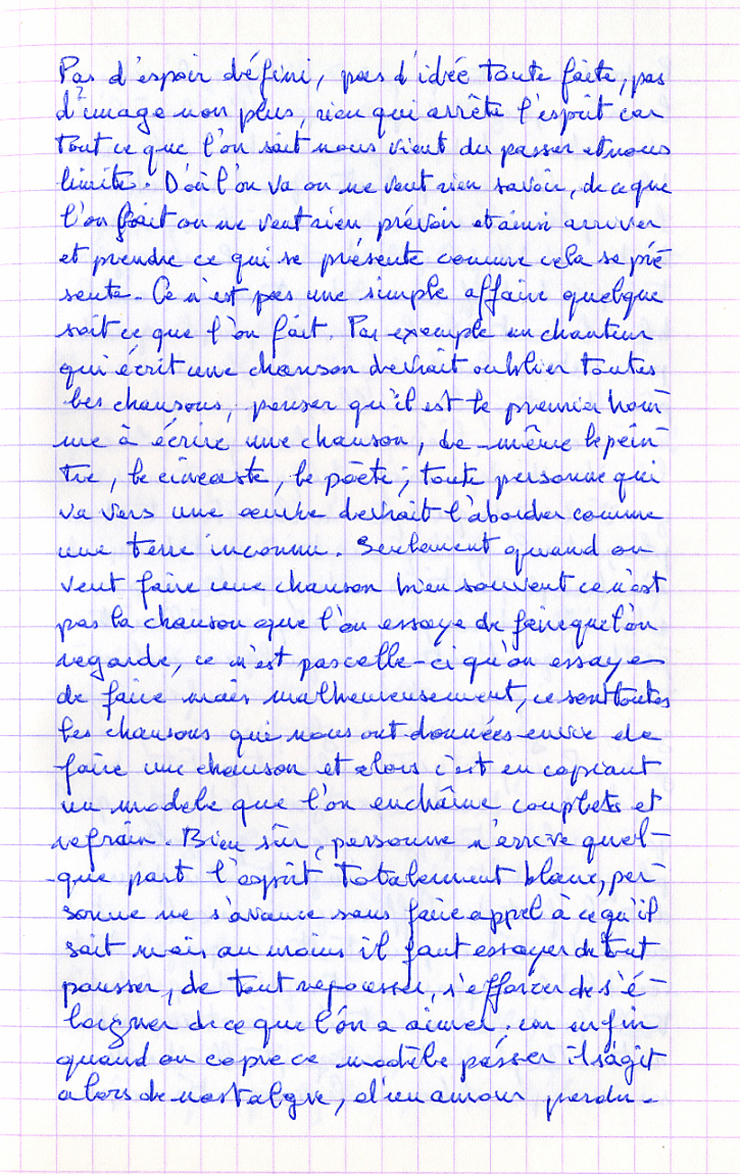 Pas d'espoir défini, pas d'idée toute faite, pas
d'image non plus, rien qui arrête l'esprit car
tout ce que l'on sait nous vient du passer et nous
limite. D'où l'on va on ne veut rien savoir, de ce que
l'on fait on ne veut rien prévoir et ainsi arriver
et prendre ce qui se présente comme cela se pré
sente. Ce n'est pas une simple affaire quelque
soit ce que l'on fait. Par exemple un chanteur
qui écrit une chanson devrait oublier toutes
les chansons, penser qu'il est le premier hom
me à écrire une chanson, de même le pein
tre, le cinéaste, le poète ; toute personne qui
va vers une oeuvre devrait l'aborder comme
une terre inconnu. Seulement quand on
veut faire une chanson bien souvent ce n'est
pas la chanson que l'on essaye de faire que l'on
regarde, ce n'est pas celle-ci qu'on essaye
de faire mais malheureusement, ce sont toutes
les chansons qui nous ont données envie de
faire une chanson et alors c'est en copiant
un modèle que l'on enchaîne couplets et
refrain. Bien sûr, personne n'arrive quel-
que part l'esprit totalement blanc, per-
sonne ne s'avance sans faire appel à ce qu'il
sait mais au moins il faut essayer de tout
pousser, de tout repousser, s'efforcer de s'é-
loigner de ce que l'on a aimer, car enfin
quand on copie ce modèle passer il s'agit
alors de nostalgie, d'un amour perdu.